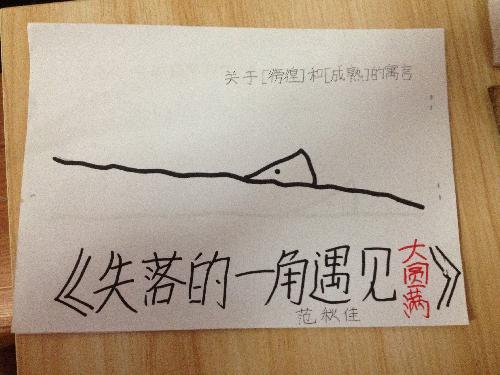 关于[徬徨]和[成熟]的寓言
《失落的一角遇见大圆满》
范秋佳